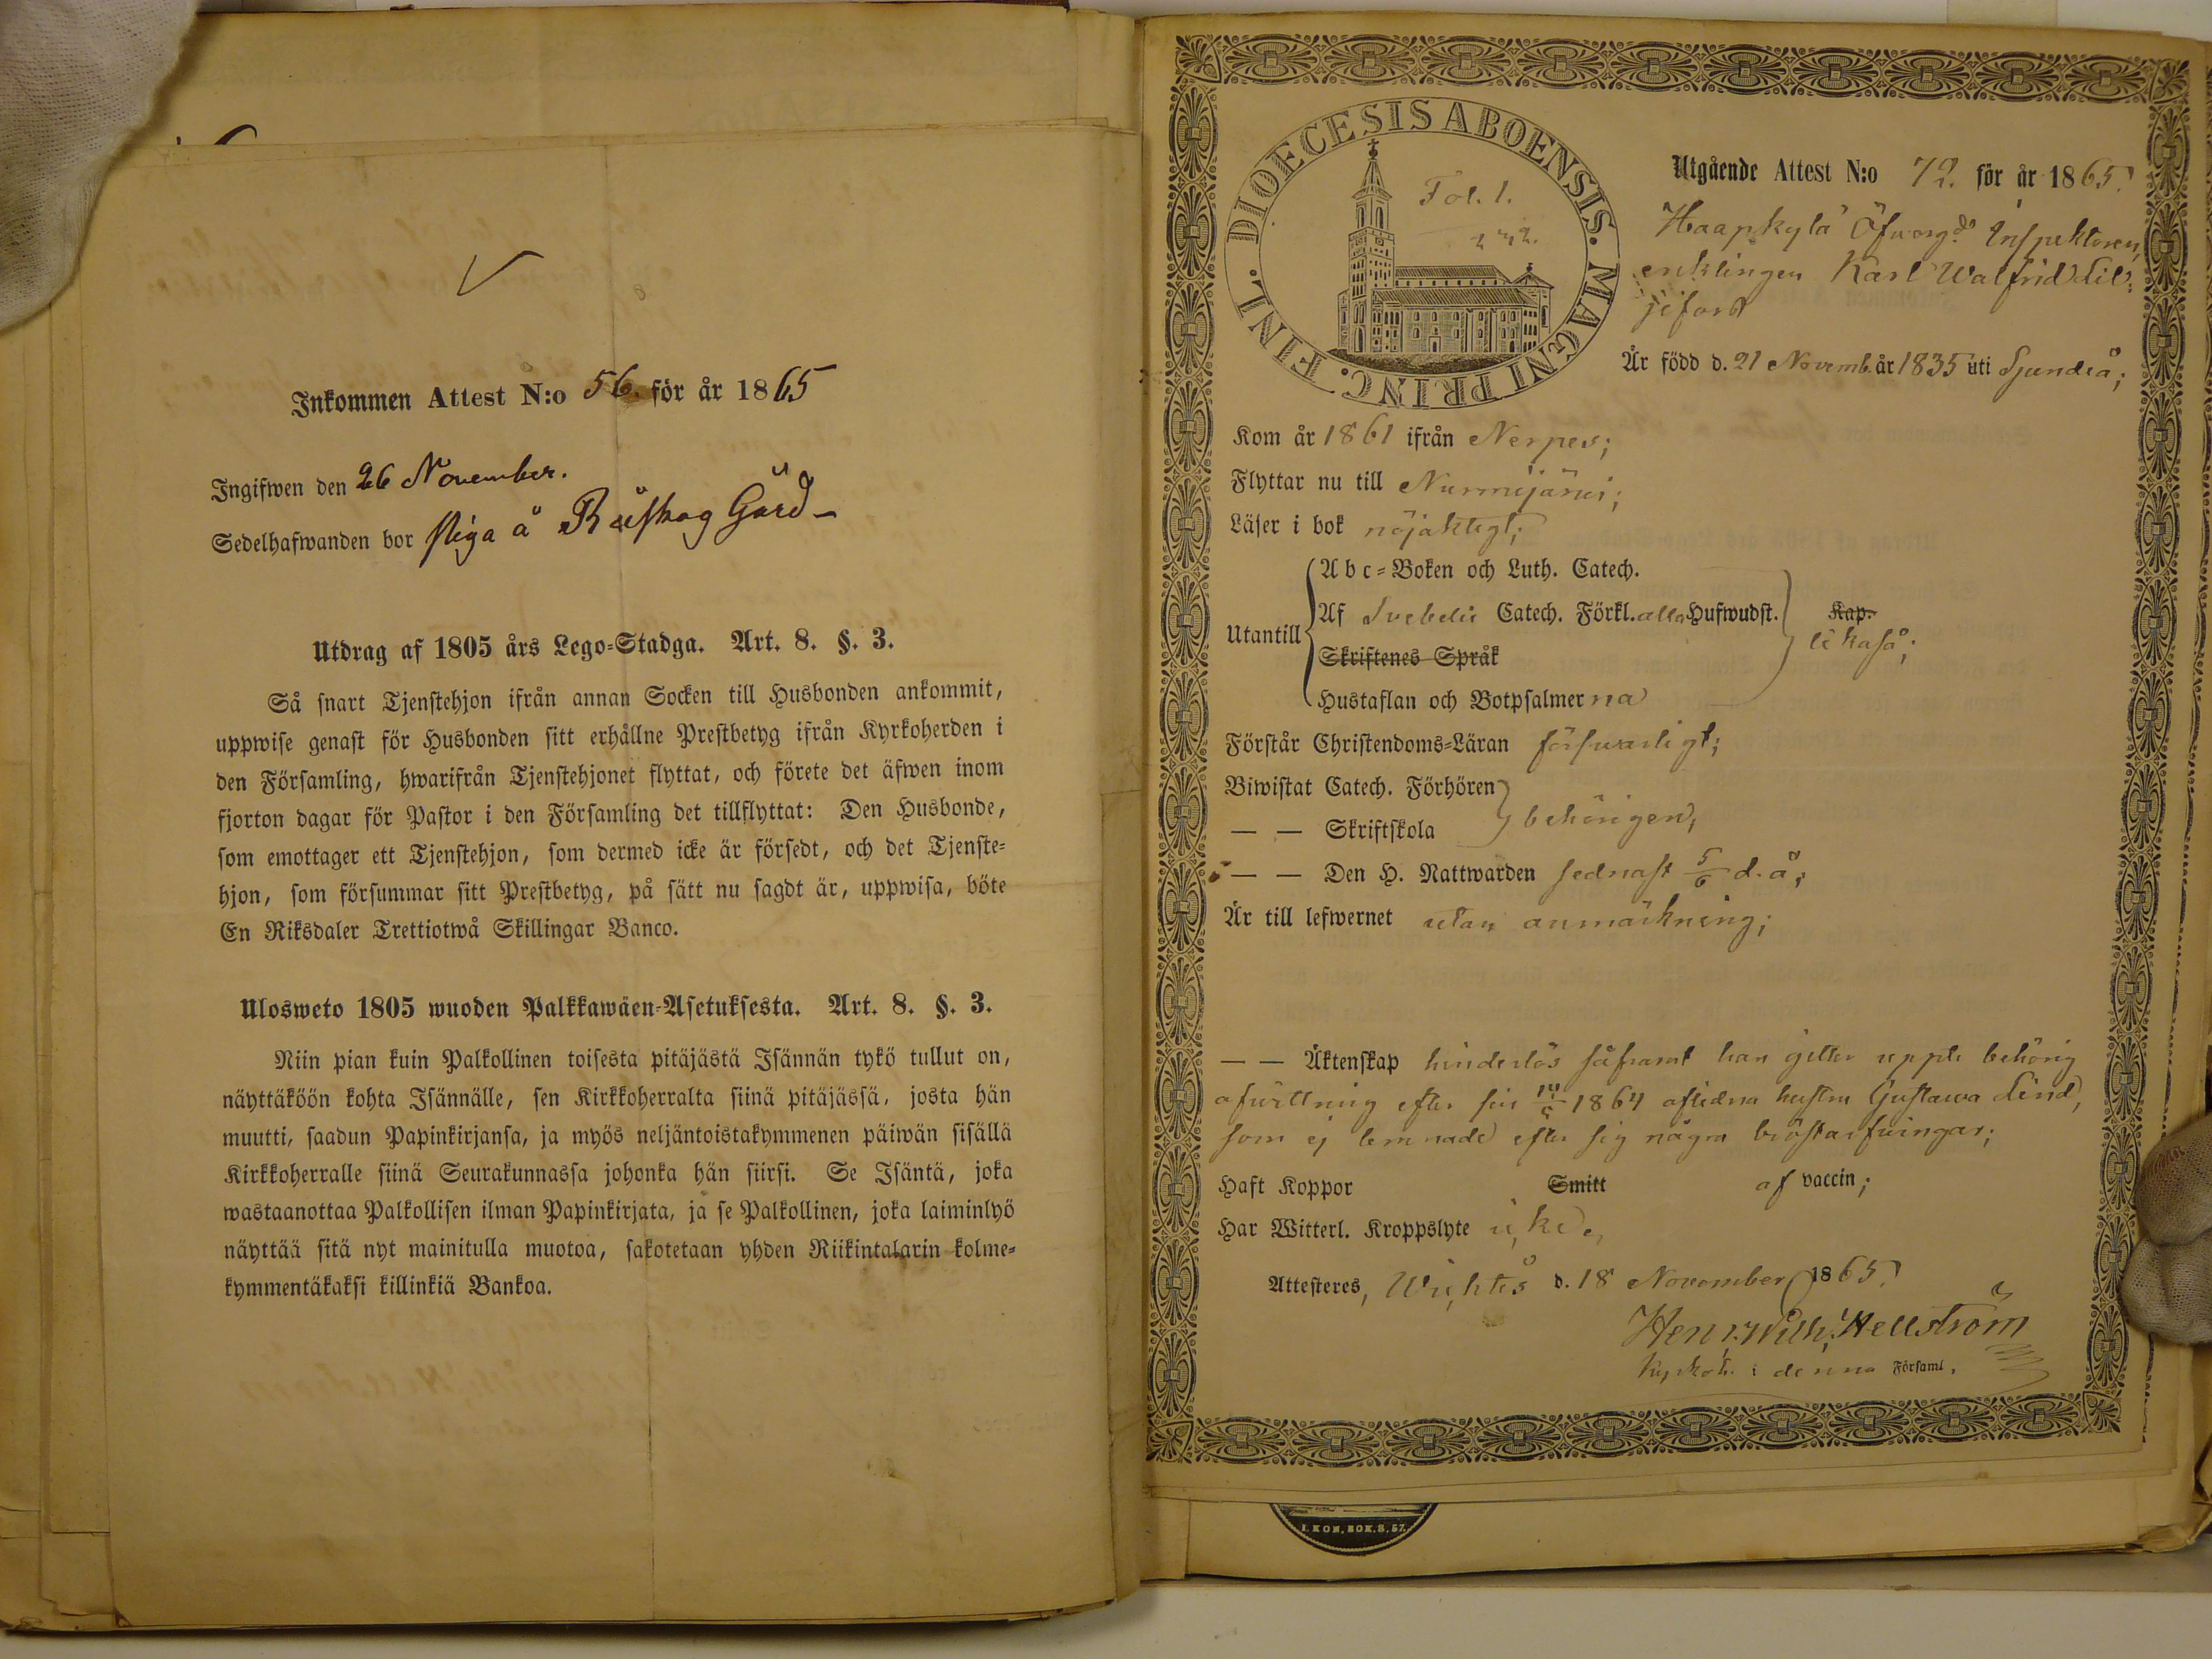 Inkommen Attest N:o 56. för år 1865
Ingifwen den 26 November.
Sedelhafwanden bor piga å Råskog Gård
Utdrag af 1805 års Lego-Stadga. Art. 8. §. 3.
Så snart Tjenstehjon ifrån annan Socken till Husbonden ankommit,
uppwise genast för Husbonden sitt erhållne Prestbetyg ifrån Kyrkoherden i
den Församling, hwarifrån Tjenstehjonet flyttat, och förete det äfwen inom
fjorton dagar för Pastor i den Församling det tillflyttat: Den Husbonde,
som emottager ett Tjenstehjon, som dermed icke är försedt, och det Tjenste-
hjon, som försummar sitt Prestbetyg, på sätt nu sagdt är, uppwisa, böte
En Riksdaler Trettiotwå Skillingar Banco.
Ulosweto 1805 wuoden Palkkawäen-Asetuksesta. Art. 8. §. 3.
Niin pian kuin Palkollinen toisesta pitäjästä Isännän tykö tullut on,
näyttäköön kohta Isännälle, sen Kirkkoherralta siinä pitäjässä, josta hän
muutti, saadun Papinkirjansa, ja myös neljäntoistakymmenen päiwän sisällä
Kirkkoherralle siinä Seurakunnassa johonka hän siirsi. Se Isäntä, joka
wastaanottaa Palkollisen ilman Papinkirjata, ja se Palkollinen, joka laiminlyö
näyttää sitä nyt mainitulla muotoa, sakotetaan yhden Riikintalarin kolme-
kymmentäkaksi killinkiä Bankoa.
DIOECESIS ABOENSIS. MAGNI PRINC. FINL.
Fol. 1.
242.
Utgående Attest N:o 72. för år 1865.
Haapkylä Öfwerg:ds Inspektoren,
enklingen Karl Walfrid Lil-
jefors
Är född d. 21 Novemb. år 1835 uti Sjundeå;
Kom år 1861 ifrån Nerpes;
Flyttar nu till Nurmijärvi;
Läser i bok nöjaktigt;
Utantill
Abc-Boken och Luth. Catech.
Af Svebelii Catech. Förkl. alla Hufwudst. Kap.
likaså;
Skriftenes Språk
Hustaflan och Botpsalmerna
Förstår Christendoms-Läran förswarligt;
Biwistat Catech. Förhören
behörigen;
— — Skriftskola
— — Den H. Nattwarden sednast 5/6 d. å;
Är till lefwernet utan anmärkning;
— — Äktenskap hinderlös såframt han gitter uppte behörig
afwittring efter sin 1864 aflidna hustru Gustawa Lind,
som ej lemnade efter sig några bröstarfwingar;
Haft Koppor Smitt af vaccin;
Har Witterl. Kroppslyte icke,
Attesteres, Wichtis d. 18 November 1865.
Henr. Wilh. Hellström
Kyrkoh. i denna Församl.
I. KON. BOK. 8. 57.